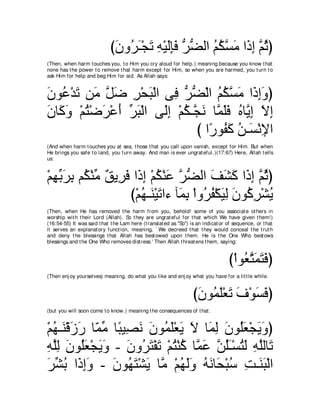 (ثُمَّ إِذَا مَسَّكُمُ الضُّرُّ فَإِلَيْهِ تَجْـَرُونَ)
(Then, when harm touches you, to Him you cry aloud for help.) meaning because you know that
none has the power to remove that harm except for Him, so when you are harmed, you turn to
ask Him for help and beg Him for aid. As Allah says:
(وَإِذَا مَسَّكُمُ الْضُّرُّ فِى الْبَحْرِ ضَلَّ مَن تَدْعُونَ
إِلاَ إِيَّاهُ فَلَمَّا نَجَّـكُمْ إِلَى الْبَرِّ أَعْرَضْتُمْ وَكَانَ
الإِنْسَـنُ كَفُورًا )
(And when harm touches you at sea, those that you call upon vanish, except for Him. But when
He brings you safe to land, you turn away. And man is ever ungrateful.)(17:67) Here, Allah tells
us:
(ثُمَّ إِذَا كَشَفَ الضُّرَّ عَنْكُمْ إِذَا فَرِيقٌ مِّنْكُم بِرَبِّهِمْ
يُشْرِكُونَ لِيَكْفُرُواْ بِمَآ ءاتَيْنَـهُمْ)
(Then, when He has removed the harm from you, behold! some of you associate others in
worship with their Lord (Allah). So they are ungrateful for that which We have given them!)
(16:54-55) It was said that the Lam here (translated as "So") is an indicator of sequence, or that
it serves an explanatory function, meaning, `We decreed that they would conceal the truth
and deny the blessings that Allah has bestowed upon them. He is the One Who bestows
blessings and the One Who removes distress.' Then Allah threatens them, saying;
(فَتَمَتَّعُواْ)
(Then enjoy yourselves) meaning, do what you like and enjoy what you have for a little while.
(فَسَوْفَ تَعْلَمُونَ)
(but you will soon come to know.) meaning the consequences of that.
(وَيَجْعَلُونَ لِمَا لاَ يَعْلَمُونَ نَصِيبًا مِّمّا رَزَقْنَـهُمْ
تَاللَّهِ لَتُسْـَلُنَّ عَمَّا كُنْتُمْ تَفْتَرُونَ - وَيَجْعَلُونَ لِلَّهِ
الْبَنَـتِ سُبْحَانَهُ وَلَهُمْ مَّا يَشْتَهُونَ - وَإِذَا بُشِّرَ